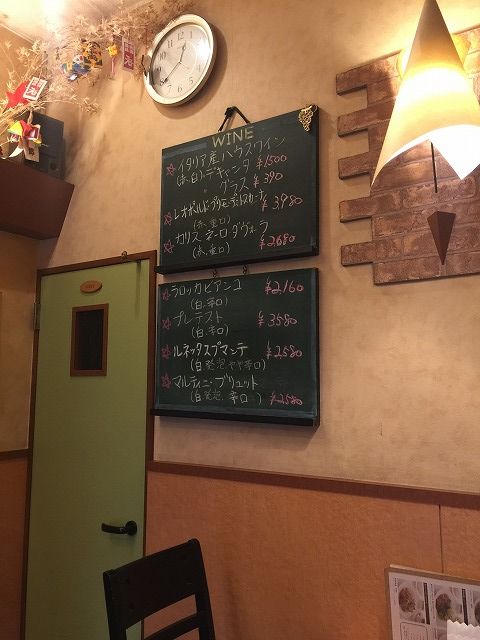 WINE
☆イタリア産ハウスワイン
(赤,白)・デキャンタ ¥1500
〃 グラス ¥390
☆レオポルド・プリモ・ディ・トスカーナ ¥3,980
(赤,重口)
☆カリス・ネーロダヴォーラ ¥2,680
(赤,重口)
☆ラロッカビアンコ ¥2,160
(白,辛口)
☆プレテスト ¥3580
(白,辛口)
☆ルネッタスプマンテ ¥2,580
(白発泡やや辛口)
☆マルティニ・ブリュット
(白発泡,辛口) ¥2,580
12